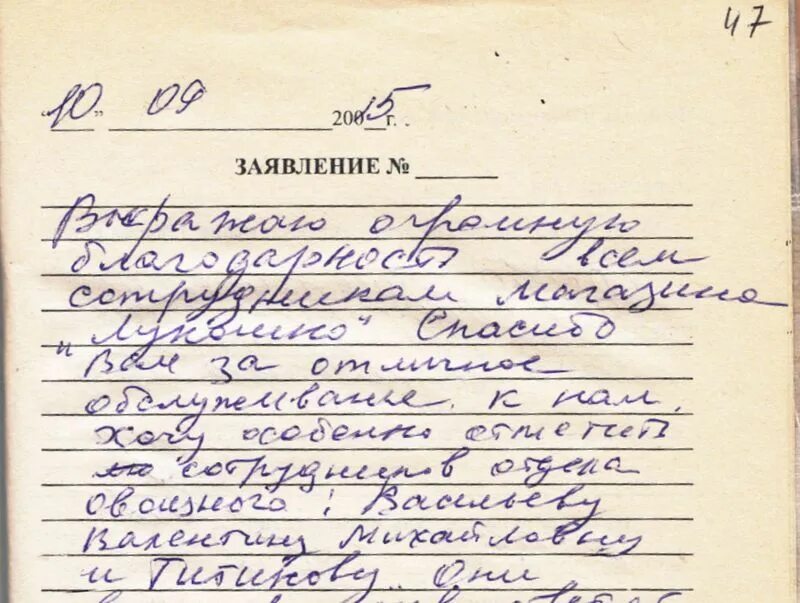 47
"10" 09 2015 г.
ЗАЯВЛЕНИЕ № ______
Выражаю огромную
благодарность всем
сотрудникам магазина
"Лукошко" Спасибо
Вам за отличное
обслуживание. к нам.
хочу особенно отметить
сотрудников отдела
овощного: Васильеву
Валентину Михайловну
и Титикову. Они